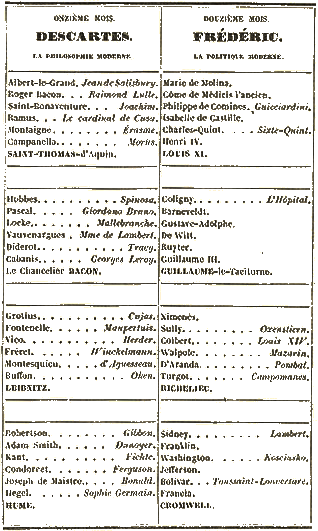 ONZIÈME MOIS.
DESCARTES.
LA PHILOSOPHIE MODERNE
Albert-le-Grand, Jean de Salisbury.
Roger Bacon. . . Raimond Lulle.
Saint-Bonaventure. . . Joachim.
Ramus. . . Le cardinal de Cusa.
Montaigne. . . . . . . . Érasme.
Campanella. . . . . . . . Morus.
SAINT-THOMAS-d'Aquin.
Hobbes. . . . . . . . . . Spinosa.
Pascal. . . . . Giordano Bruno.
Locke. . . . . . . . Mallebranche.
Vauvenargues . Mme de Lambert.
Diderot. . . . . . . . . . . Tracy.
Cabanis. . . . . . Georges Leroy.
Le Chancelier BACON.
Grotius. . . . . . . . . . . Cujas.
Fontenelle. . . . . . Maupertuis.
Vico. . . . . . . . . . . . Herder.
Fréret. . . . . . . . Winckelmann.
Montesquieu. . . . . d'Aguesseau.
Buffon. . . . . . . . . . . . Oken.
LEIBNITZ.
Robertson. . . . . . . . . Gibbon.
Adam Smith. . . . . . . Dunoyer.
Kant. . . . . . . . . . . . Fichte.
Condorcet. . . . . . . Ferguson.
Joseph de Maistre. . . . Bonald.
Hegel. . . . . . Sophie Germain.
HUME.
DOUZIÈME MOIS.
FRÉDÉRIC.
LA POLITIQUE MODERNE.
Marie de Molina.
Côme de Médicis l'ancien.
Philippe de Comines. Guicciardini.
Isabelle de Castille.
Charles-Quint. . . . . Sixte-Quint.
Henri IV.
LOUIS XI.
Coligny. . . . . . . . . . L'Hôpital.
Barneveldt.
Gustave-Adolphe.
De Witt.
Ruyter.
Guillaume III.
GUILLAUME-le-Taciturne.
Ximenès.
Sully. . . . . . . . . . . Oxenstiern.
Colbert. . . . . . . . . . Louis XIV.
Walpole. . . . . . . . . . . Mazarin.
D'Aranda. . . . . . . . . . Pombal.
Turgot. . . . . . . . . Campomanes.
RICHELIEU.
Sidney. . . . . . . . . . . Lambert.
Franklin.
Washington. . . . . . . Kosciusko.
Jefferson.
Bolivar. . . Toussaint-Louverture.
Francia.
CROMWELL.